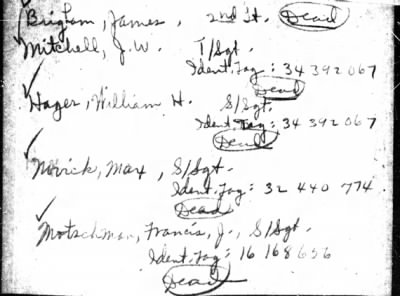 Brigham, James, 2nd Lt. Dead
Mitchell, J.W. T/Sgt.
Ident. Tag: 34 392 067
Dead
Hager, William H. S/Sgt.
Ident. Tag: 34 392 067
Dead
Norrick, Max, S/Sgt.
Ident. Tag: 32 440 774
Dead
Motschman, Francis, J., S/Sgt.
Ident. Tag: 16 168 656
Dead